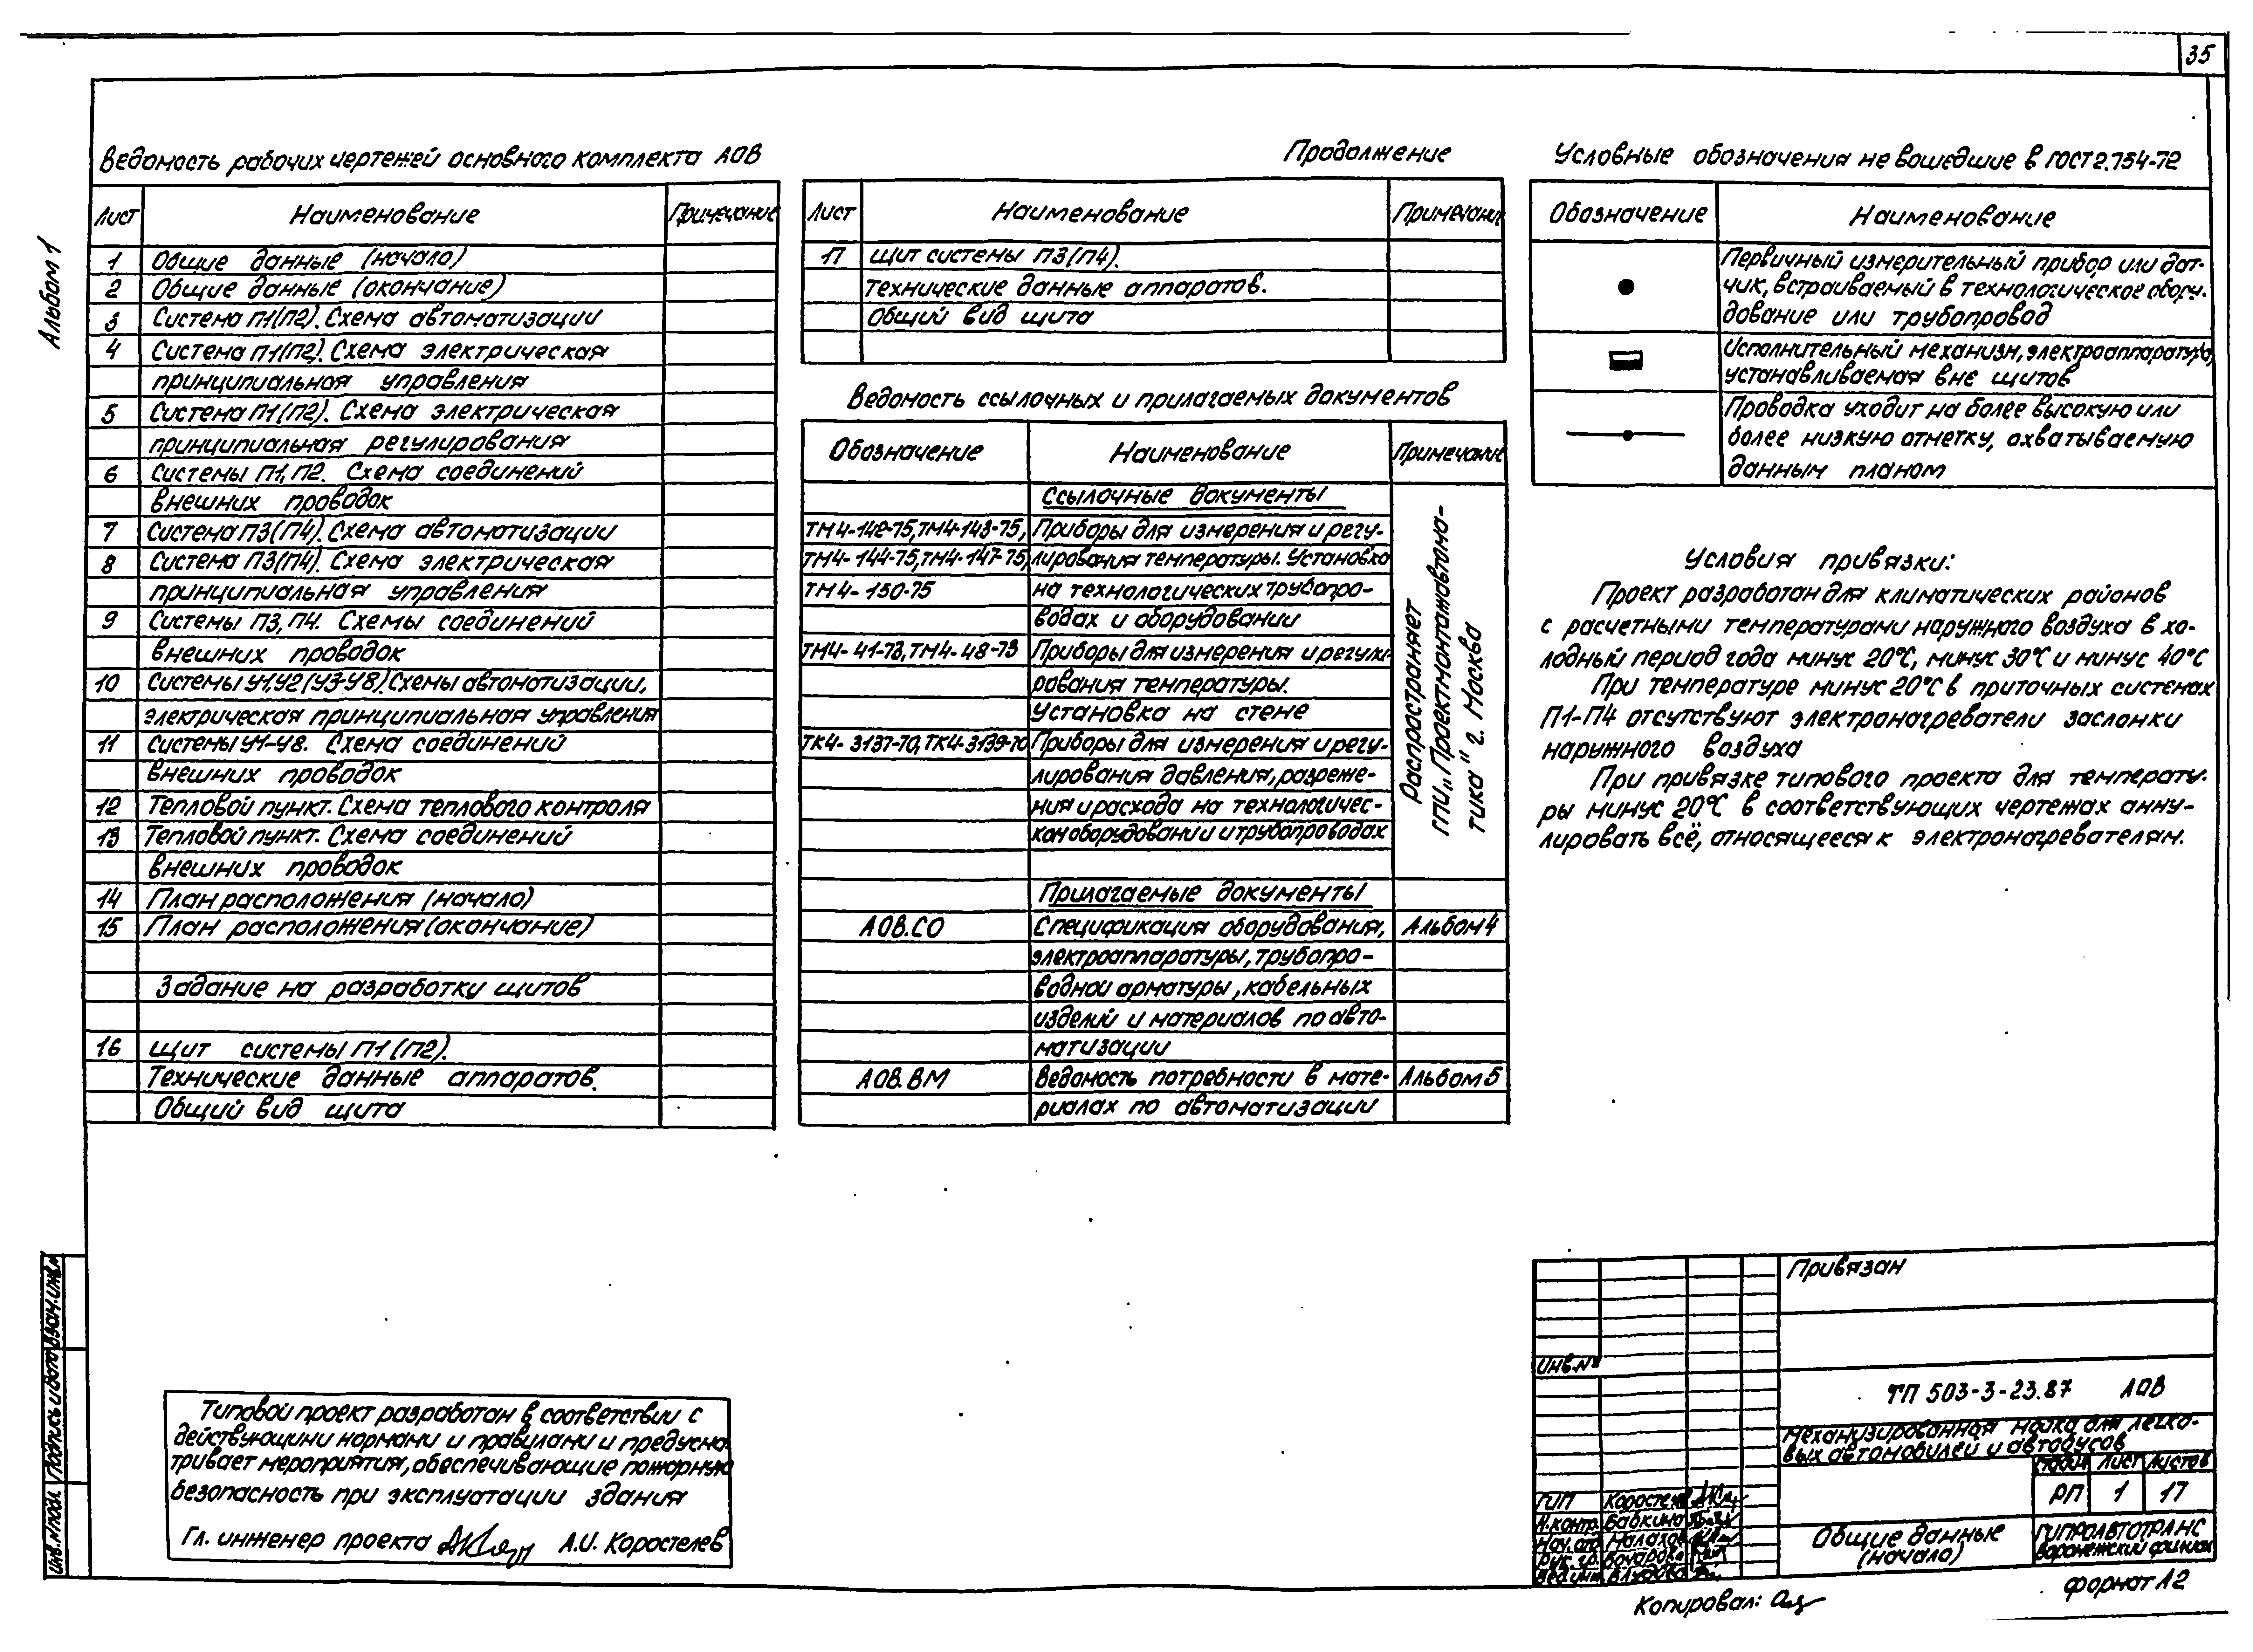 35
Альбом 1
Ведомость рабочих чертежей основного комплекта АОВ
Лист Наименование Примечание
1 Общие данные (начало)
2 Общие данные (окончание)
3 Система П1(П2). Схема автоматизации
4 Система П1(П2). Схема электрическая
принципиальная управления
5 Система П1(П2). Схема электрическая
принципиальная регулирования
6 Системы П1, П2. Схема соединений
внешних проводок
7 Система П3(П4). Схема автоматизации
8 Система П3(П4). Схема электрическая
принципиальная управления
9 Системы П3, П4. Схемы соединений
внешних проводок
10 Системы У1,У2 (У3-У8). Схемы автоматизации,
электрическая принципиальная управления
11 Системы У1-У8. Схема соединений
внешних проводок
12 Тепловой пункт. Схема теплового контроля
13 Тепловой пункт. Схема соединений
внешних проводок
14 План расположения (начало)
15 План расположения (окончание)
Задание на разработку щитов
16 Щит системы П1 (П2).
Технические данные аппаратов.
Общий вид щита
Продолжение
Лист Наименование Примечание
17 Щит системы П3(П4).
Технические данные аппаратов.
Общий вид щита
Ведомость ссылочных и прилагаемых документов
Обозначение Наименование Примечание
Ссылочные документы
ТМ4-142-75, ТМ4-143-75, Приборы для измерения и регу-
ТМ4-144-75, ТМ4-147-75, лирования температуры. Установка
ТМ4-150-75 на технологических трубопро-
водах и оборудовании
ТМ4-41-73, ТМ4-48-73 Приборы для измерения и регули-
рования температуры.
Установка на стене
ТК4-3137-70, ТК4-3139-70 Приборы для измерения и регу-
лирования давления, разреже-
ния и расхода на технологичес-
ком оборудовании и трубопроводах
Распространяет
ГПИ „Проектмонтажавтома-
тика" г. Москва
Прилагаемые документы
АОВ.СО Спецификация оборудования, Альбом 4
электроаппаратуры, трубопро-
водной арматуры, кабельных
изделий и материалов по авто-
матизации
АОВ.ВМ Ведомость потребности в мате- Альбом 5
риалах по автоматизации
Условные обозначения не вошедшие в ГОСТ 2.754-72
Обозначение Наименование
Первичный измерительный прибор или дат-
чик, встраиваемый в технологическое обору-
дование или трубопровод
Исполнительный механизм, электроаппаратура,
устанавливаемая вне щитов
Проводка уходит на более высокую или
более низкую отметку, охватываемую
данным планом
Условия привязки:
Проект разработан для климатических районов
с расчетными температурами наружного воздуха в хо-
лодный период года минус 20°С, минус 30°С и минус 40°С
При температуре минус 20°С в приточных системах
П1-П4 отсутствуют электронагреватели заслонки
наружного воздуха
При привязке типового проекта для температу-
ры минус 20°С в соответствующих чертежах анну-
лировать всё, относящееся к электронагревателям.
Типовой проект разработан в соответствии с
действующими нормами и правилами и предусма-
тривает мероприятия, обеспечивающие пожарную
безопасность при эксплуатации здания
Гл. инженер проекта А.И. Коростелев
Инв.№подл. Подпись и дата Взам.инв.№
Привязан
Инв.№
ТП 503-3-23.87 АОВ
Механизированная мойка для легко-
вых автомобилей и автобусов
Стадия Лист Листов
РП 1 17
ГИП Коростелев
Н.контр. Бабкина
Нач.отд. Малахов
Рук.гр. Бочарова
Вед.инж.
Общие данные
(начало)
ГИПРОАВТОТРАНС
Воронежский филиал
Копировал:
формат А2